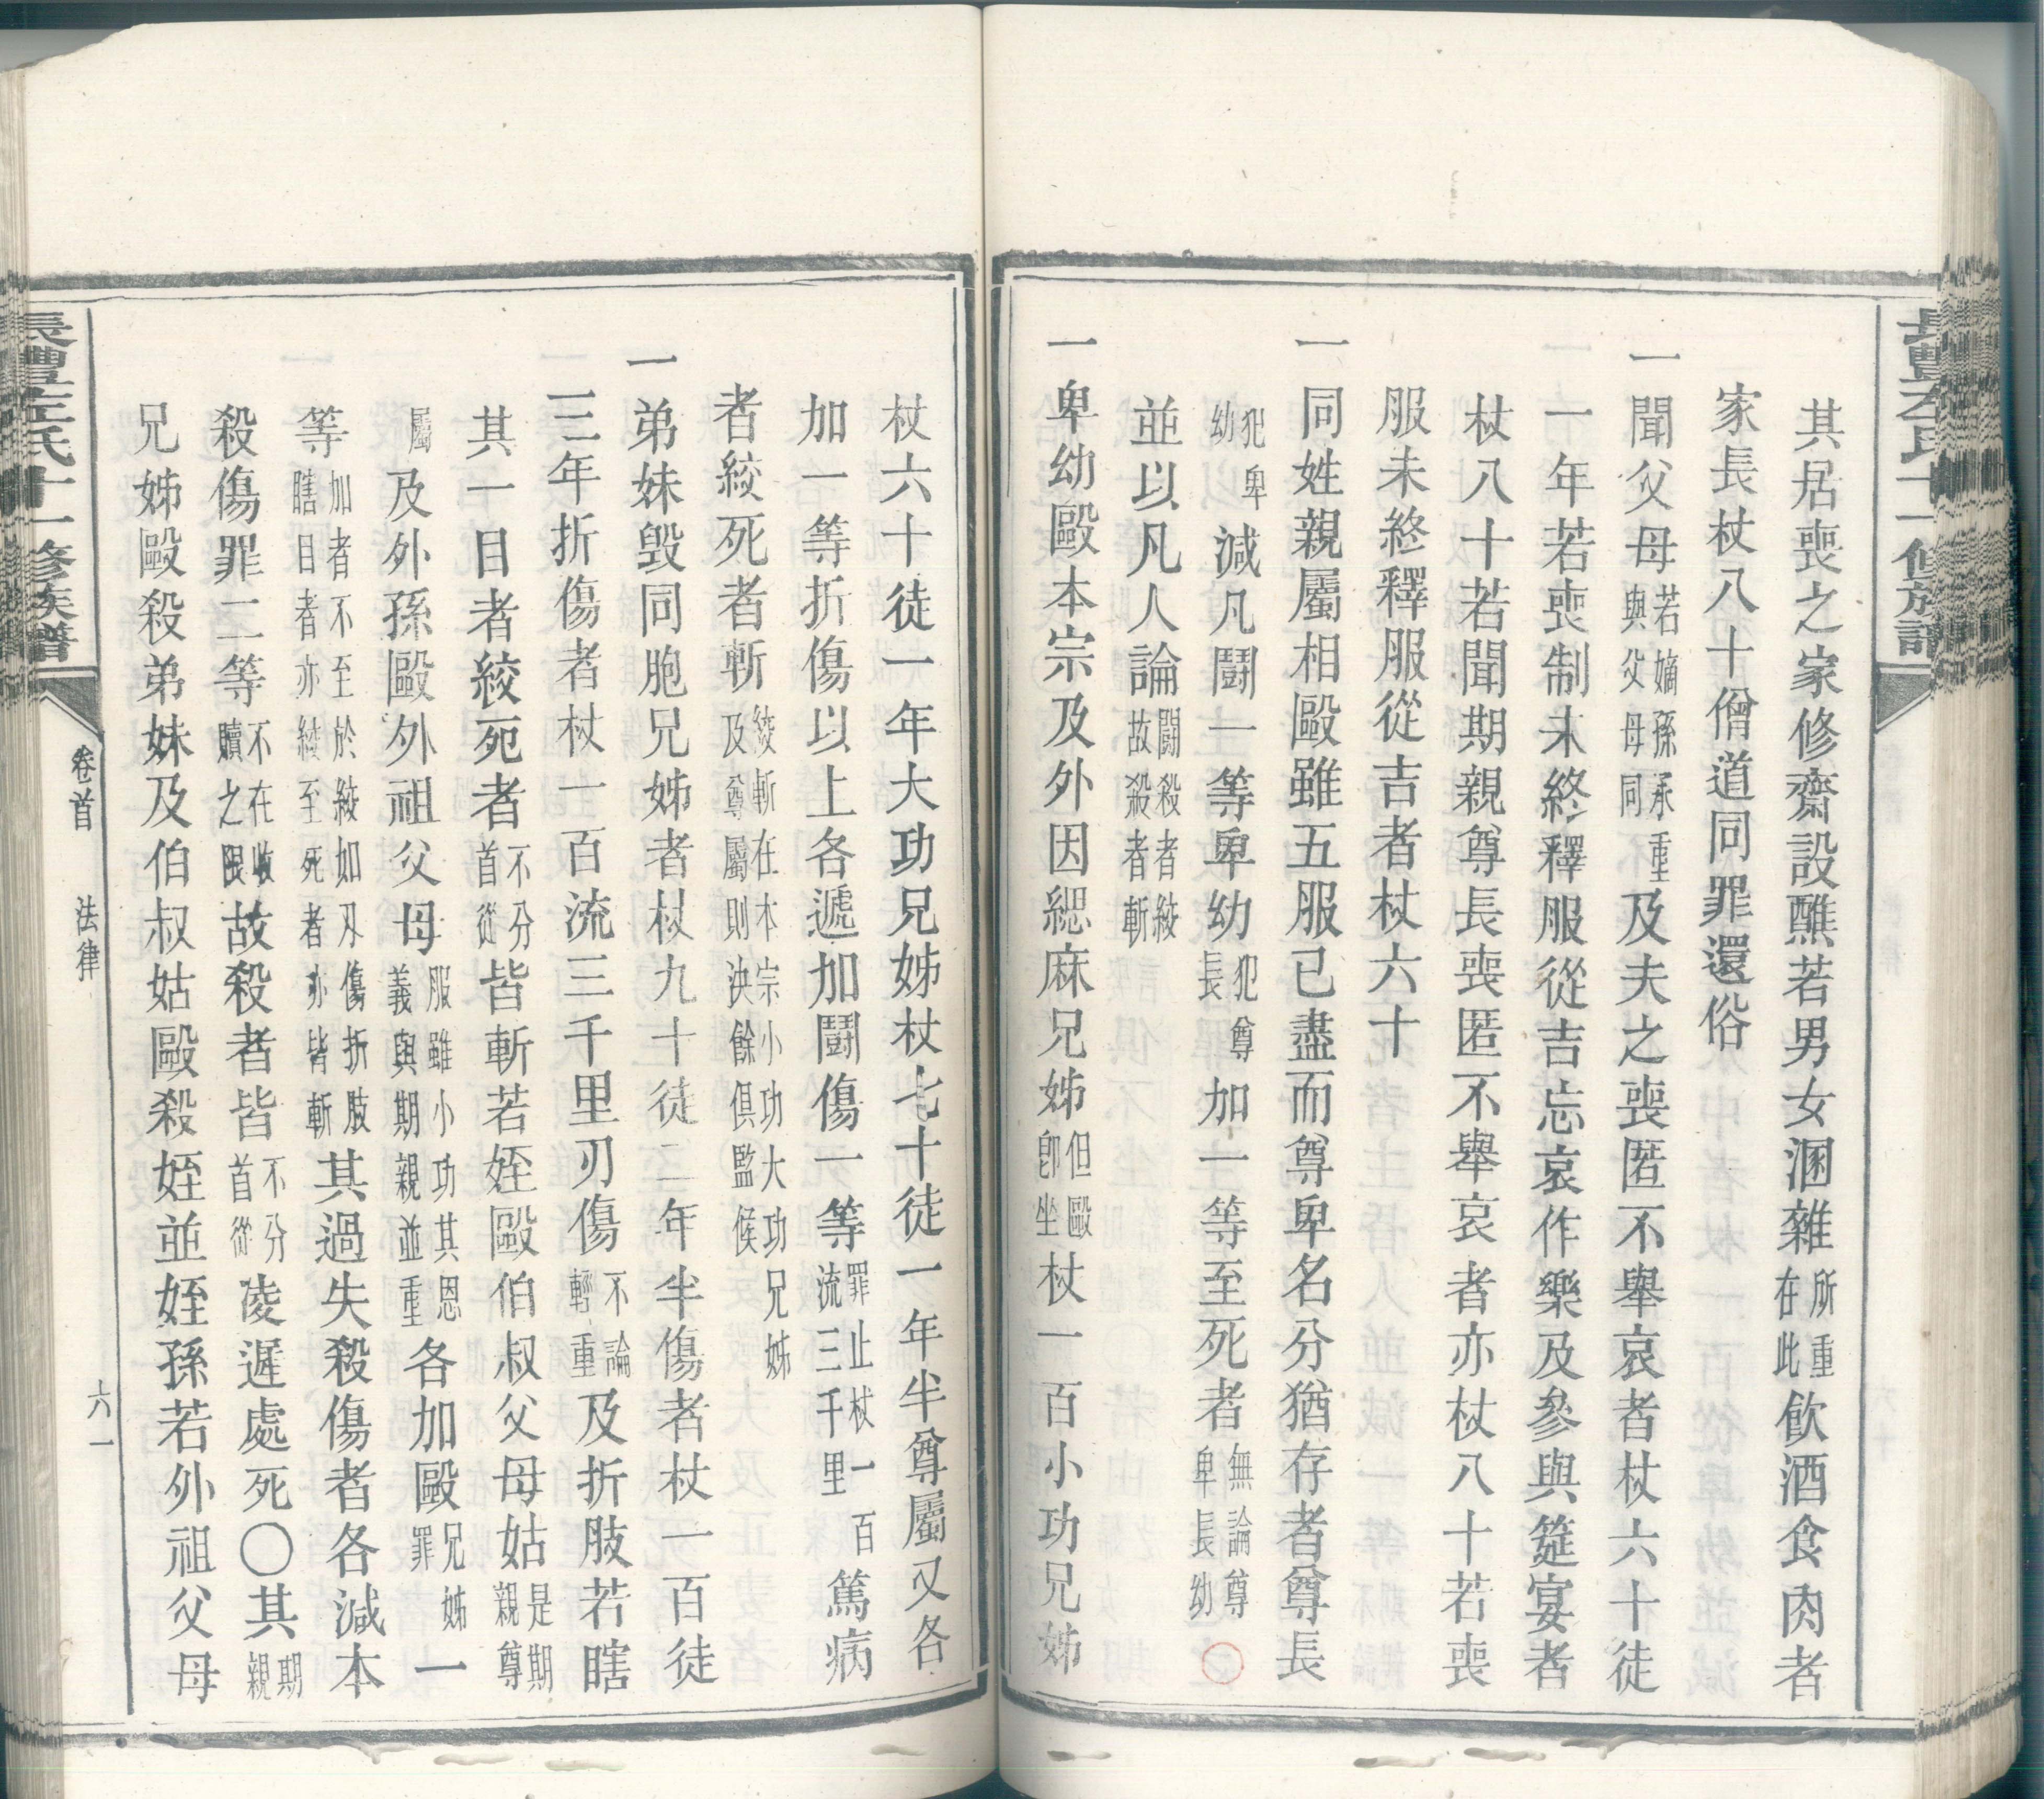 長豐左氏十一修族譜
其居喪之家修齋設醮若男女溷雜所重在此飲酒食肉者
家長杖八十僧道同罪還俗
一聞父母若嫡孫承重與父母同及夫之喪匿不舉哀者杖六十徒
一年若喪制未終釋服從吉忘哀作樂及參與筵宴者
杖八十若聞期親尊長喪匿不舉哀者亦杖八十若喪
服未終釋服從吉者杖六十
一同姓親屬相毆雖五服已盡而尊卑名分猶存者尊長
犯卑幼減凡鬪一等卑幼犯尊長加一等至死者無論尊卑長幼
並以凡人論鬪殺者絞故殺者斬
一卑幼毆本宗及外因緦麻兄姊但毆卽坐杖一百小功兄姊
杖六十徒一年大功兄姊杖七十徒一年半尊屬又各
加一等折傷以上各遞加鬪傷一等罪止杖一百流三千里篤病
者絞死者斬絞斬在本宗小功大功兄姊及尊屬則決餘俱監候
一弟妹毁同胞兄姊者杖九十徒二年半傷者杖一百徒
三年折傷者杖一百流三千里刃傷不論輕重及折肢若瞎
其一目者絞死者不分首從皆斬若姪毆伯叔父母姑是期親尊
屬及外孫毆外祖父母服雖小功其恩義與期親並重各加毆兄姊罪一
等加者不至於絞如刃傷折肢瞎目者亦絞至死者亦皆斬其過失殺傷者各減本
殺傷罪二等不在收贖之限故殺者皆不分首從凌遲處死〇其期親
兄姊毆殺弟妹及伯叔姑毆殺姪並姪孫若外祖父母
長豐左氏十一修族譜
卷首
法律
六一